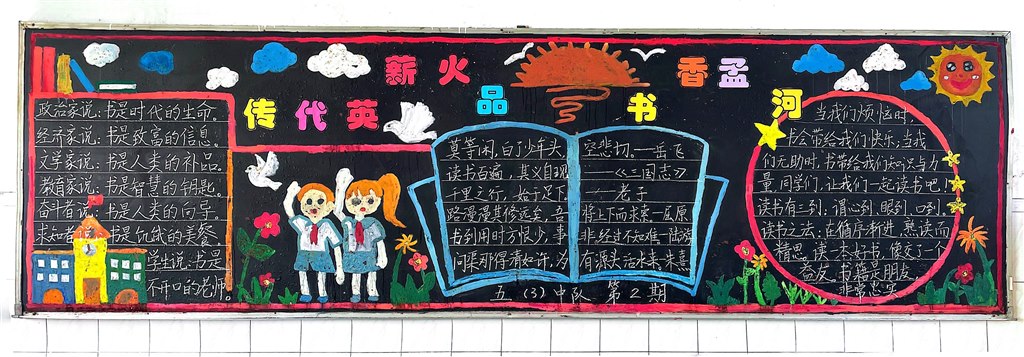 薪火 香孟
传代英 品 书 河
政治家说:书是时代的生命。
经济家说:书是致富的信息。
文学家说:书是人类的补品。
教育家说:书是智慧的钥匙。
奋斗者说:书是人类的向导。
求知者说:书是饥饿的美餐。
学生说:书是
不开口的老师。
莫等闲,白了少年头,
读书百遍,其义自现
千里之行,始于足下
路漫漫其修远兮,吾
书到用时方恨少,事
问渠那得清如许,为
空悲切。——岳飞
——《三国志》
——老子
将上下而求索—屈原
非经过不知难—陆游
有源头活水来—朱熹
当我们烦恼时
书会带给我们快乐;当我
们无助时,书带给我们知识与力
量,同学们,让我们一起读书吧!
读书有三到:谓心到,眼到,口到。
读书之法:在循序渐进,熟读而
精思,读一本好书,像交了一个
益友。书籍是朋友
非常忠实
五(3)中队 第2期